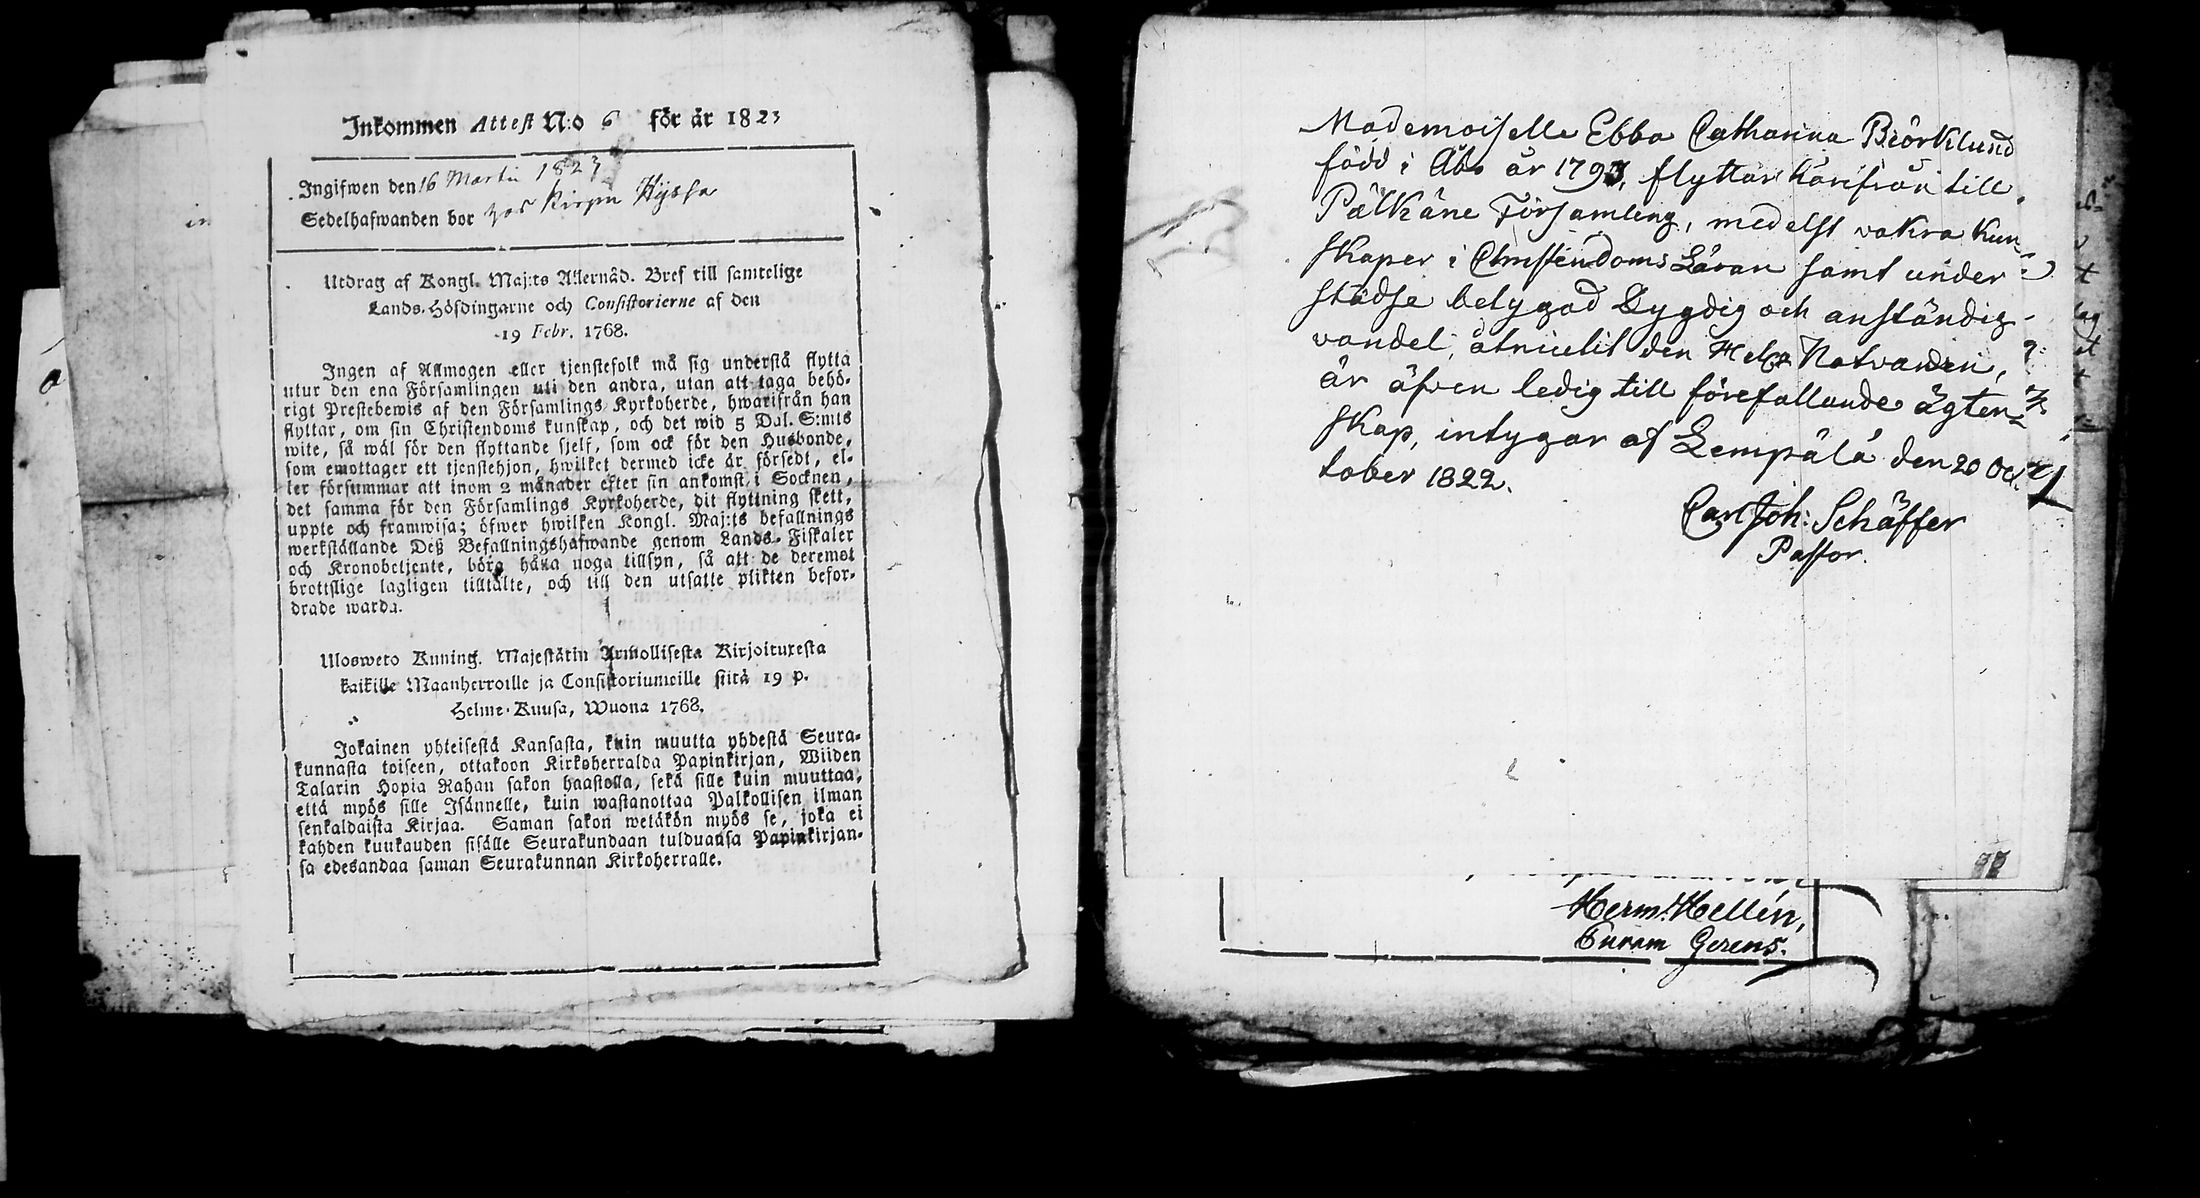 Inkommen Attest N:o 6 för år 1823
Ingifwen den 16 Martii 1823
Sedelhafwanden bor hos
Utdrag af Kongl. Maj:ts Allernåd. Bref till samtelige
Lands-Höfdingarne och Consistorierne af den
19 Febr. 1768.
Ingen af Allmogen eller tjenstefolk må sig understå flytta
utur den ena Församlingen uti den andra, utan att taga behö-
rigt Prestebewis af den Församlings Kyrkoherde, hwarifrån han
flyttar, om sin Christendoms kunskap, och det wid 5 Dal. S:mts
wite, så wäl för den flyttande sjelf, som ock för den Husbonde,
som emottager ett tjenstehjon, hwilket dermed icke är försedt, el-
ler försummar att inom 2 månader efter sin ankomst i Socknen,
det samma för den Församlings Kyrkoherde, dit flyttning skett,
uppte och framwisa; öfwer hwilken Kongl. Maj:ts befallnings
werkställande Deß Befallningshafwande genom Lands-Fiskaler
och Kronobetjente, böra hålla noga tillsyn, så att de deremot
brottslige lagligen tilltalte, och till den utsatte plikten befor-
drade warda.
Ulosweto Kuning. Majestätin Armollisesta Kirjoituxesta
kaikille Maanherroille ja Consistoriumeille siitä 19 p.
Helme-Kuusa, Wuona 1768.
Jokainen yhteisestä Kansasta, kuin muutta yhdestä Seura-
kunnasta toiseen, ottakoon Kirkoherralda Papinkirjan, Wiiden
Talarin Hopia Rahan sakon haastolla, sekä sille kuin muuttaa,
että myös sille Isännelle, kuin wastanottaa Palkollisen ilman
senkaldaista Kirjaa. Saman sakon wetäkön myös se, joka ei
kahden kuukauden sisälle Seurakundaan tulduansa Papinkirjan-
sa edesandaa saman Seurakunnan Kirkoherralle.
Mademoiselle Ebba Catharina Biörklund
född i Åbo år 1793, flyttar härifrån till
Pälkäne Församling, medelst vakra kun-
skaper i Christendoms Läran samt under
städse betygad Dygdig och anständig
vandel, åtniutit den Helga Natvarden,
är äfven ledig till förefallande ägten-
skap, intygar af Lempälä den 20 Oc-
tober 1822.
Carl Joh: Schäffer
Pastor.
Herm: Hellén,
Curam Gerens.